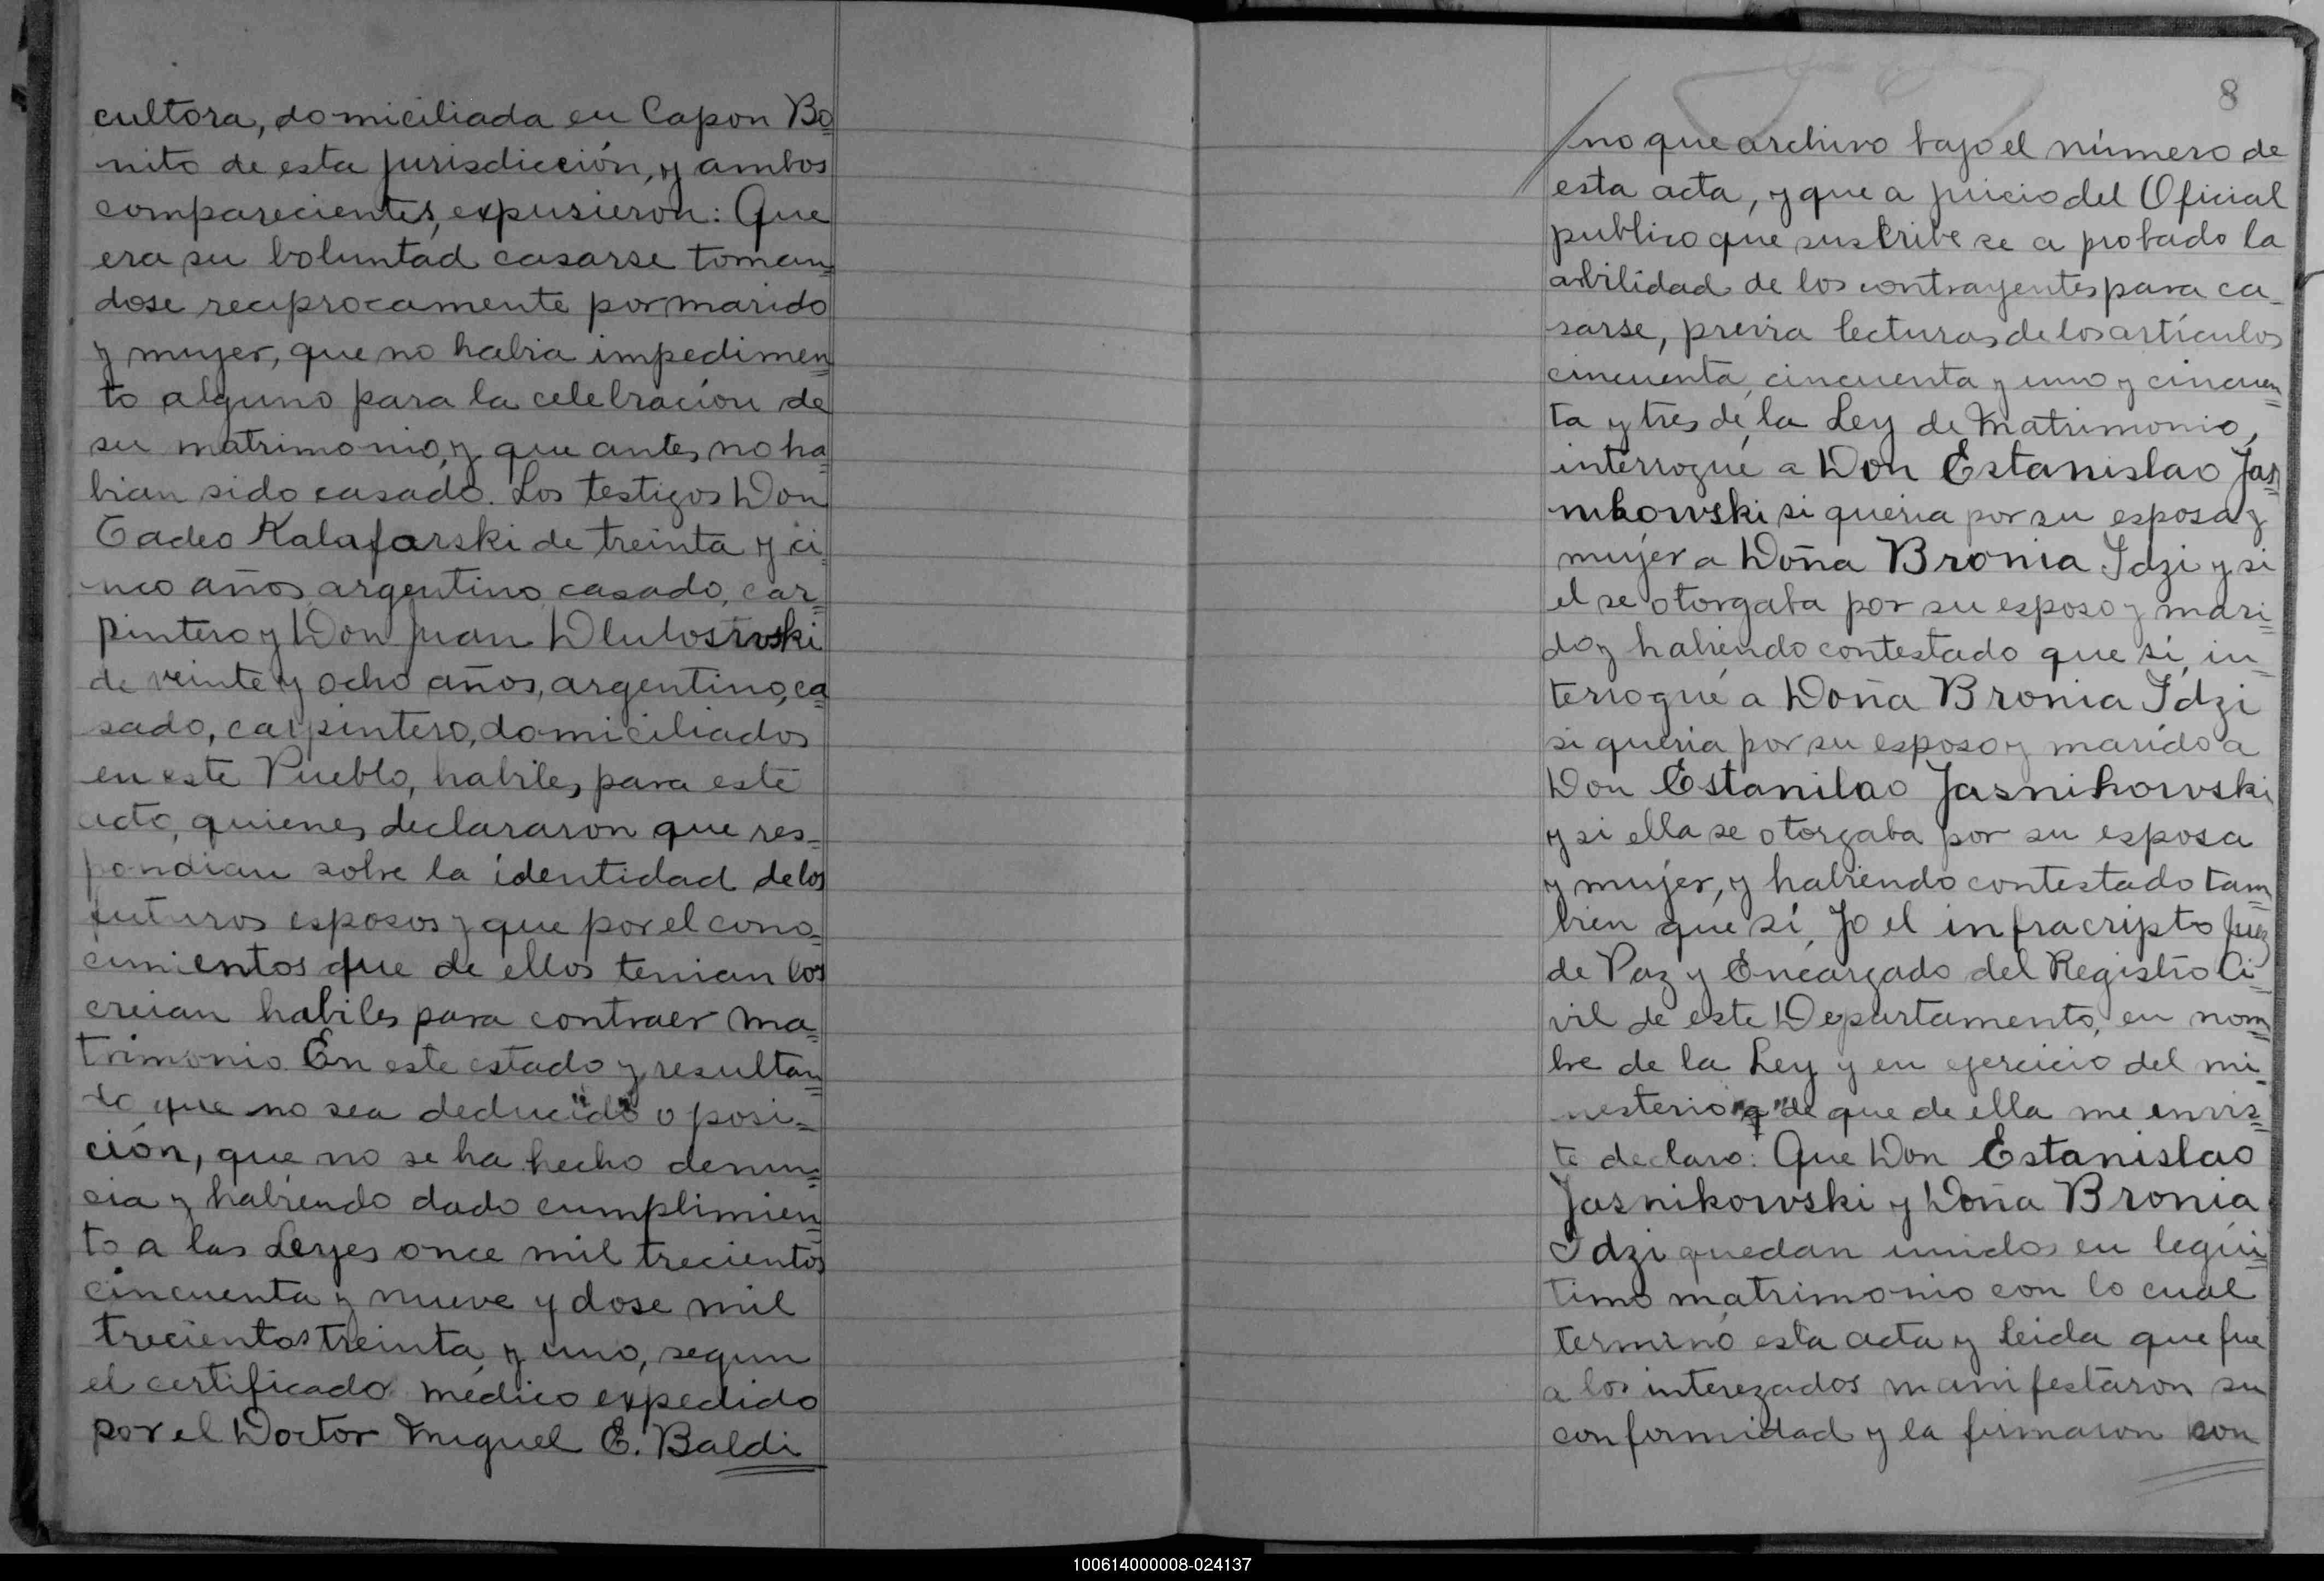 cultora, domiciliada en Capon Bo=
nito de esta jurisdicción, y ambos
comparecientes, expusieron: Que
era su boluntad casarse toman=
dose reciprocamente por marido
y mujer, que no habia impedimen=
to alguno para la celebración de
su matrimonio, y que antes no ha=
bian sido casado. Los testigos Don
Tadeo Kalafarski de treinta y ci=
nco años, argentino, casado, car=
pintero y Don Juan
de veinte y ocho años, argentino, ca=
sado, carpintero, domiciliados
en este Pueblo, habiles para este
acto, quienes declararon que res=
pondian sobre la identidad de los
futuros esposos y que por el cono=
cimientos que de ellos tenian los
creian habiles para contraer ma=
trimonio. En este estado y resultan=
do que no sea deducido oposi=
ción, que no se ha hecho denun=
cia y habiendo dado cumplimien=
to a las Leyes once mil trecientos
cincuenta y nueve y dose mil
trecientos treinta y uno, segun
el certificado médico expedido
por el Doctor Miguel E. Baldi
8
no que archivo bajo el número de
esta acta, y que a juicio del Oficial
publico que suscribe se a probado la
abilidad de los contrayentes para ca=
sarse, previa lecturas de los artículos
cincuenta, cincuenta y uno y cincuen=
ta y tres de la Ley de Matrimonio,
interrogué a Don Estanislao Jas=
nikowski si queria por su esposa y
mujer a Doña Bronia Idzi y si
el se otorgaba por su esposo y mari=
do y habiendo contestado que sí, in=
terrogué a Doña Bronia Idzi
si queria por su esposo y marido a
Don Estanilao Jasnikowski
y si ella se otorgaba por su esposa
y mujer, y habiendo contestado tam=
bien que sí, Yo el infracripto Juez
de Paz y Encargado del Registro Ci=
vil de este Departamento, en nom=
bre de la Ley y en ejercicio del mi=
nesterio de que de ella me envis=
te declaro: Que Don Estanislao
Jasnikowski y Doña Bronia
Idzi quedan unidos en legui=
timo matrimonio con lo cual
terminó esta acta y leida que fue
a los interezados manifestaron su
conformidad y la firmaron con
100614000008-024137